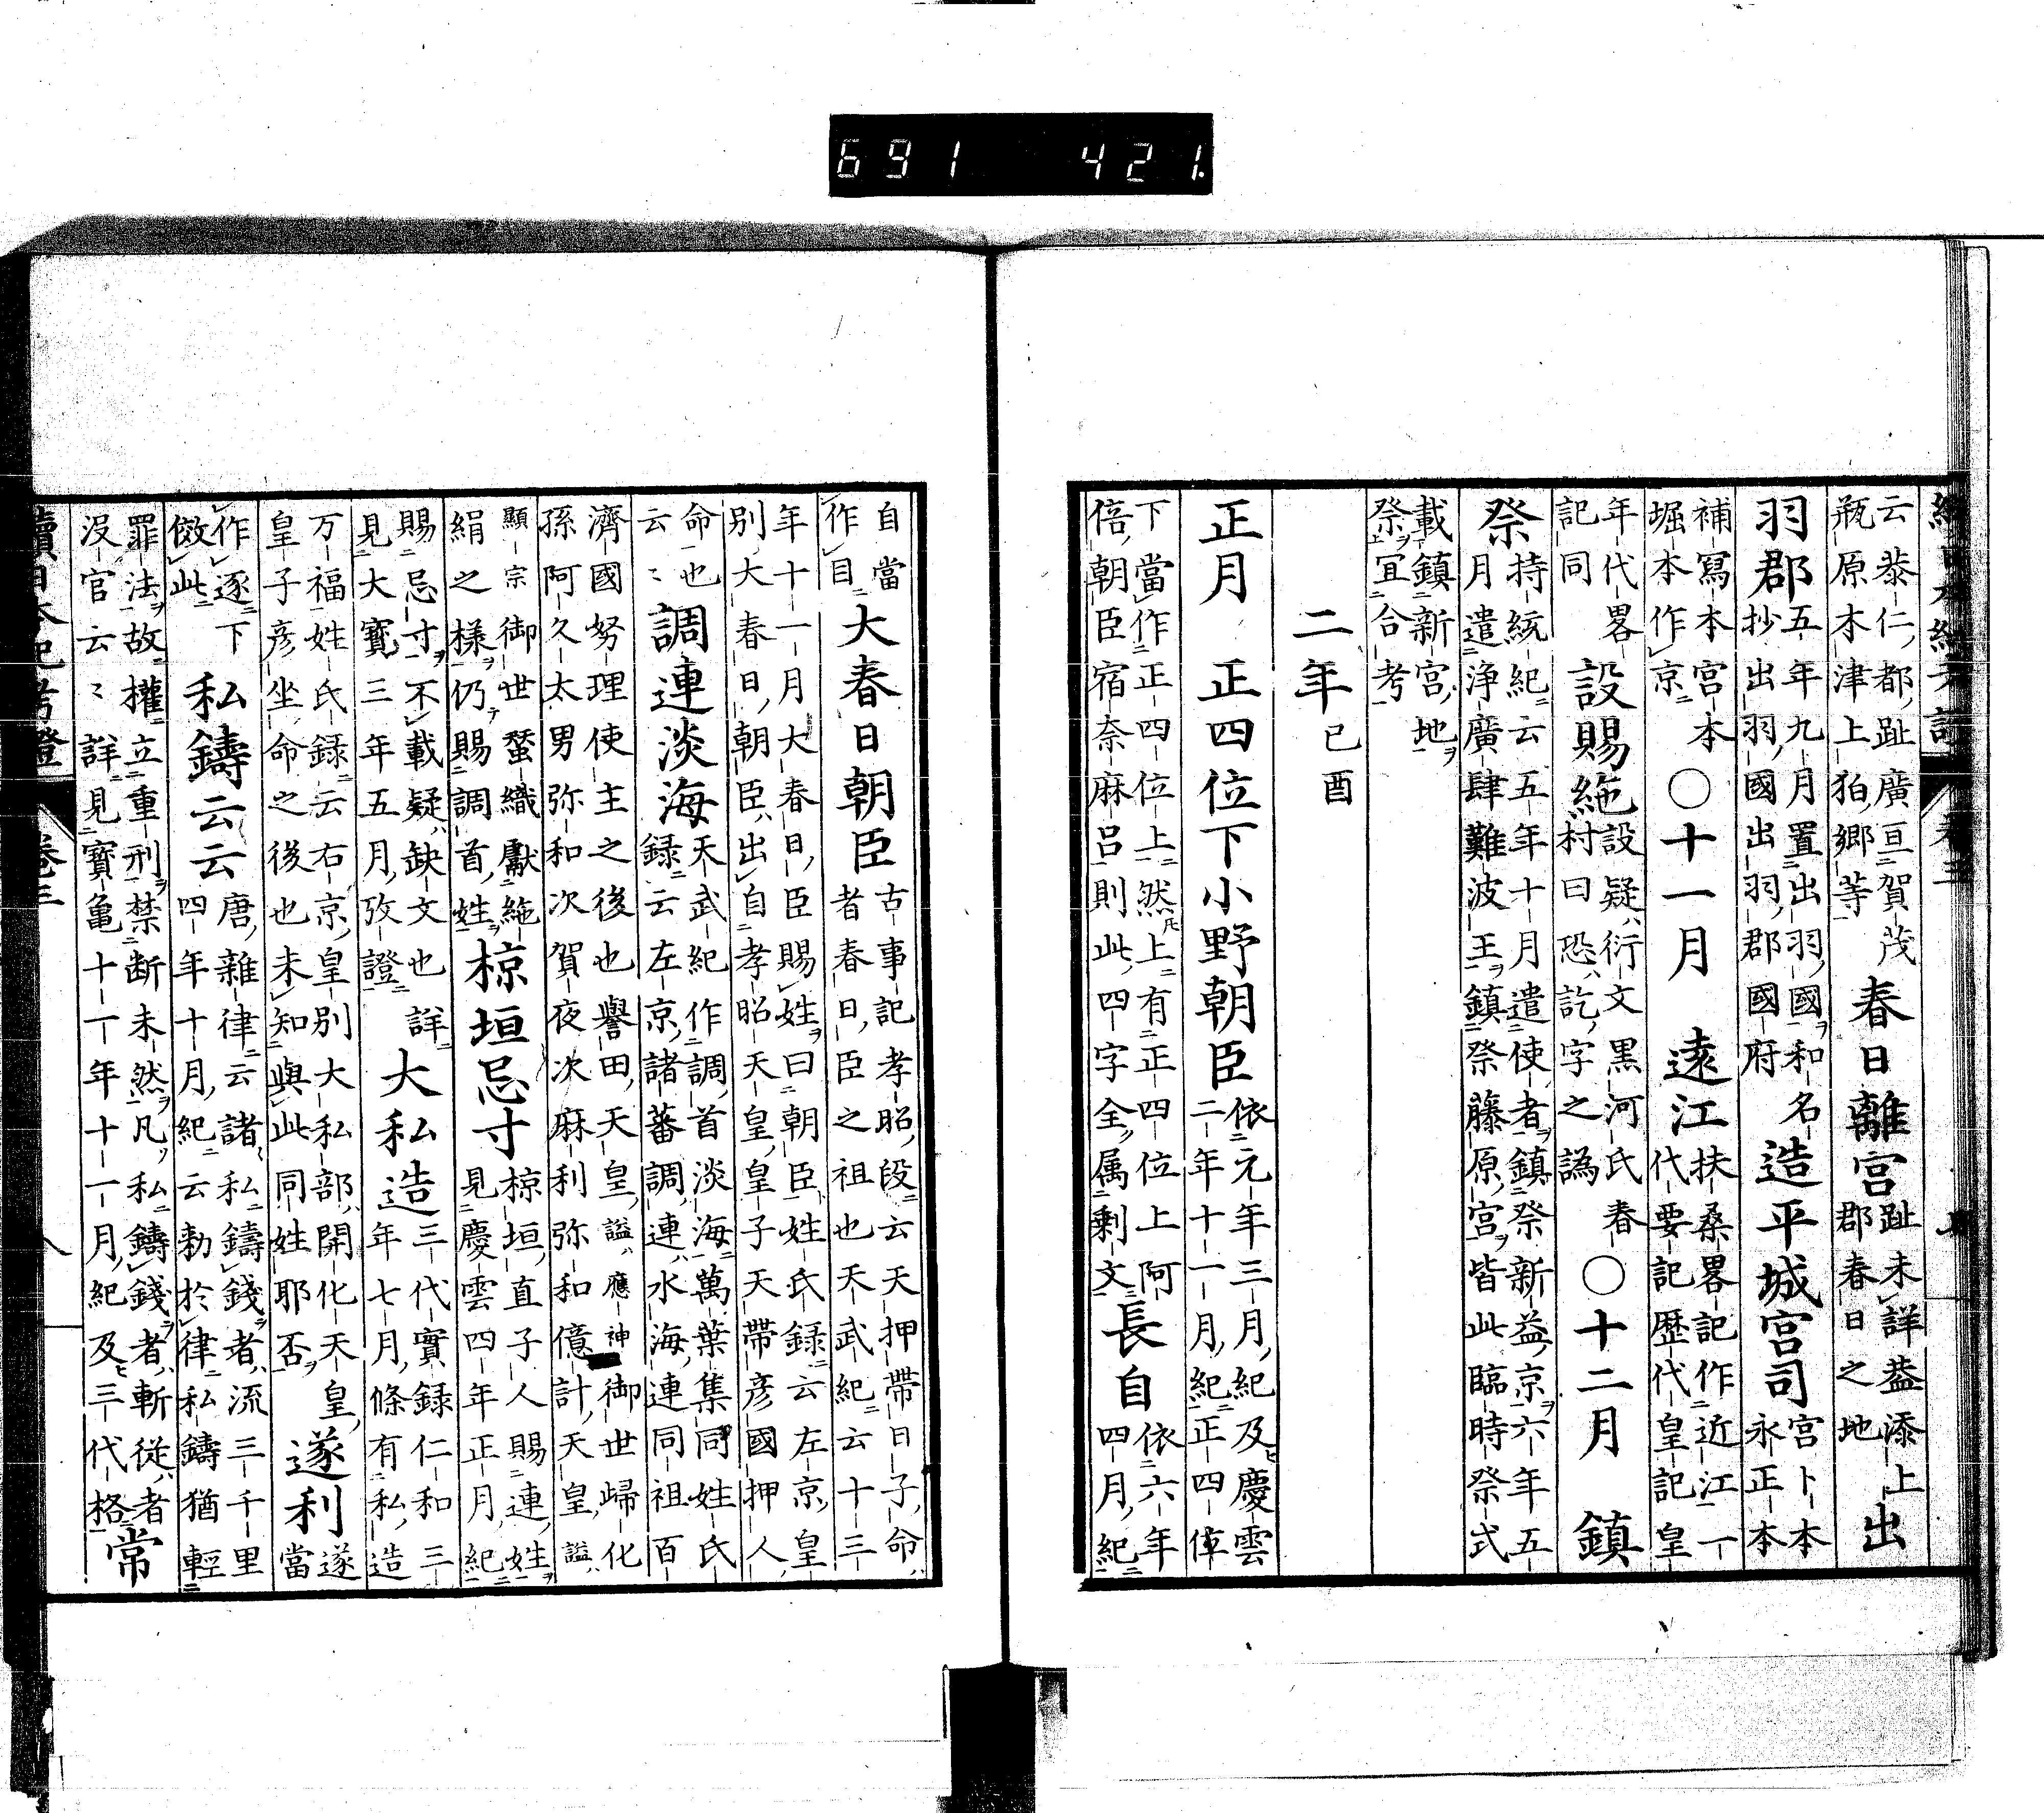 691 421.
云恭仁都趾廣亘賀茂
瓶原木津上狛鄉等
春日離宮
趾未詳蓋添上
郡春日之地
出
羽郡
五年九月置出羽國和名
抄出羽國出羽郡國府
造平城宮司
宮卜本
永正本
補寫本宮本
堀本作京
○十一月
遠江
扶桑畧記作近江一
代要記歷代皇記皇
年代畧
記同
設賜絁
設疑衍文黑河氏春
村曰恐訖字之譌
○十二月
鎮
祭
持統紀云五年十月遣使者鎮祭新益京六年五
月遣淨廣肆難波王鎮祭藤原宮皆此臨時祭式
載鎮新宮地
祭宜合考
二年
已酉
正月
正四位下小野朝臣
依元年三月紀及慶雲
二年十一月紀正四位
下當作正四位上然上有正四位上阿
倍朝臣宿奈麻呂則此四字全屬剩文
長自
依六年
四月紀
自當
作目
大春日朝臣
古事記孝昭段云天押帶日子命
者春日臣之祖也天武紀云十三
年十一月大春日臣賜姓曰朝臣姓氏録云左京皇
別大春日朝臣出自孝昭天皇皇子天帶彦國押人
命也
云〻
調連淡海
天武紀作調首淡海萬葉集同姓氏
録云左京諸蕃調連水海連同祖百
濟國努理使主之後也譽田天皇謚應神御世歸化
孫阿久太男弥和次賀夜次麻利弥和億計天皇謚
顯宗御世蠶織獻絁
絹之様仍賜調首姓
椋垣忌寸
椋垣直子人賜連姓
見慶雲四年正月紀
賜忌寸不載疑缺文也詳
見大寳三年五月攷證
大私造
三代實録仁和三
年七月條有私造
万福姓氏録云右京皇別大私部開化天皇
皇子彦坐命之後也未知與此同姓耶否
遂利
遂
當
作逐下
傚此
私鑄云云
唐雜律云諸私鑄錢者流三千里
四年十月紀云勅於律私鑄猶輕
罪法故權立重刑禁断未然凡私鑄錢者斬從者
沒官云〻詳見寳亀十一年十一月紀及三代格
常
續日本紀考證
卷三
八